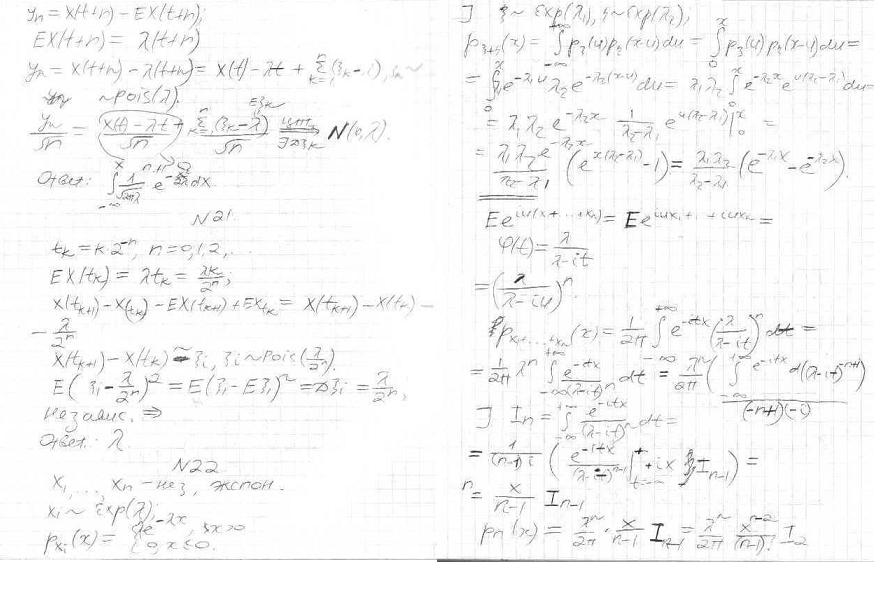 yₙ = X(t+n) - EX(t+n);
EX(t+n) = λ(t+n)
yₙ = X(t+n) - λ(t+n) = X(t) - λt + Σ(ξₖ - 1), ξₖ ~
~ pois(λ).
yₙ/√n = (X(t) - λt)/√n + Σ(ξₖ - λ)/√n ⇒ N(0, λ).
Ответ: ∫ 1/√(2πλ) e dx
N21.
tₖ = k·2⁻ⁿ, n = 0,1,2,..
EX(tₖ) = λtₖ = λk/2ⁿ;
X(tₖ₊₁) - X(tₖ) - EX(tₖ₊₁) + EXtₖ = X(tₖ₊₁) - X(tₖ) -
- λ/2ⁿ
X(tₖ₊₁) - X(tₖ) ~ ξᵢ, ξᵢ ~ Pois(λ/2ⁿ).
E(ξᵢ - λ/2ⁿ)² = E(ξᵢ - Eξᵢ)² = Dξᵢ = λ/2ⁿ,
независ. ⇒
Ответ: λ
N22
X₁, ..., Xₙ - нез, экспон.
Xᵢ ~ Exp(λ);
pₓᵢ(x) = { λe^(-λx), x>0
0, x≤0.
ξ ~ Exp(λ₁), ς ~ Exp(λ₂);
(x) = ∫ (u) p (x-u)du = ∫ (u) p (x-u)du =
= ∫ λ₁e^(-λ₁u) λ₂e^(-λ₂(x-u)) du = λ₁λ₂ ∫ e^(-λ₂x) e^(u(λ₂-λ₁)) du =
= λ₁λ₂ e^(-λ₂x) 1/(λ₂-λ₁) e^(u(λ₂-λ₁)) |₀ˣ =
= λ₁λ₂e^(-λ₂x)/(λ₂-λ₁) (e^(x(λ₂-λ₁)) - 1) = λ₁λ₂/(λ₂-λ₁) (e^(-λ₁x) - e^(-λ₂x)).
Ee^(iu(X₁+...+Xₙ)) = Ee^(iuX₁+...+iuXₙ) =
φ(t) = λ/(λ-it)
= (λ/(λ-iu))ⁿ.
p (x) = 1/2π ∫ e^(-itx) (λ/(λ-it))ⁿ dt =
= 1/2π λⁿ ∫ e^(-itx)/(λ-it)ⁿ dt = λⁿ/2π (∫ e^(-itx) d(λ-it)^(-n+1))/((-n+1)(-i))
Iₙ = ∫ e^(-itx)/(λ-it)ⁿ dt =
= 1/((n-1)i) (e^(-itx)/(λ-it)ⁿ⁻¹ | + ix Iₙ₋₁) =
= x/(n-1) Iₙ₋₁
pₙ(x) = λⁿ/2π · x/(n-1) Iₙ₋₁ = λⁿ/2π xⁿ⁻²/(n-1)! I₂